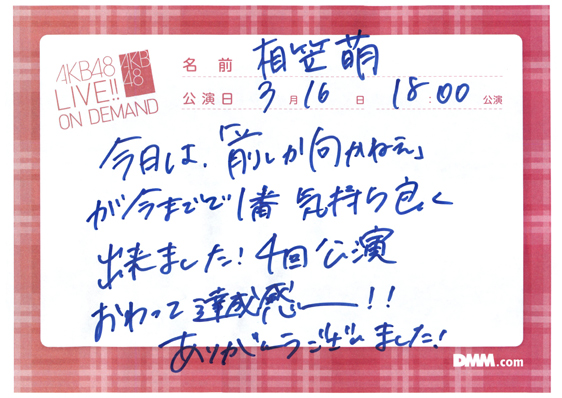 AKB48
LIVE!!
ON DEMAND
AKB
48
名前 相笠萌
公演日 3月16日 18:00公演
今日は、「前しか向かねえ」
が今までで1番 気持ち良く
出来ました!4回公演
おわって達成感ー!!
ありがとうございました!
DMM.com